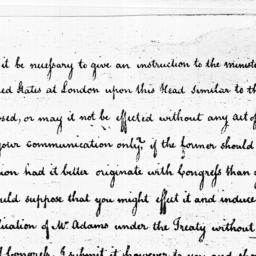 it be necessary to give an instruction to the ministe
ed States at London upon this Head similar to th
osed, or may it not be effected without any act of
your communication only; if the former should
ion had it better originate with Congress than
uld suppose that you might effect it and induce
lication of Mr Adams under the Treaty without
Congress. I submit it however to you and